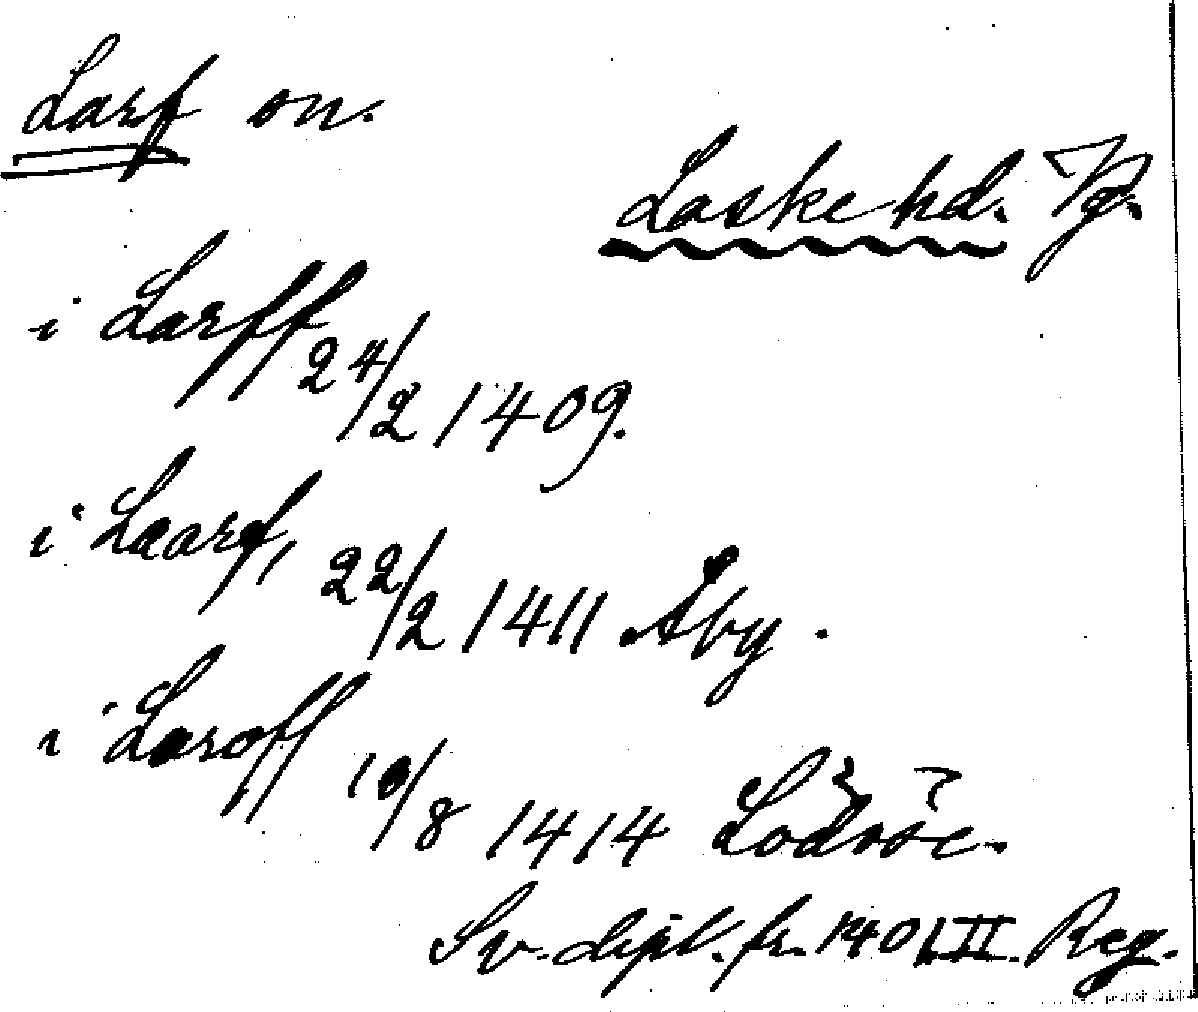 Larf sn.
Laske hd. Vg.
i Larff 24/2 1409.
i Laarf, 22/2 1411 Åby.
i Laroff 10/8 1414 Lödöse.
Sv. dipl. fr. 1401 II. Reg.